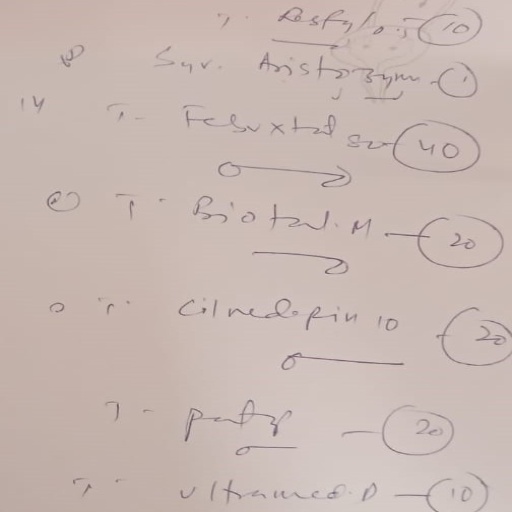 T. 10
Syr. Aristozyme - 1
14 T. Febuxtal 40
T. Biotal.M - 20
T. Cilnedepin 10 - 20
T - - 20
T. ultramed.D - 10